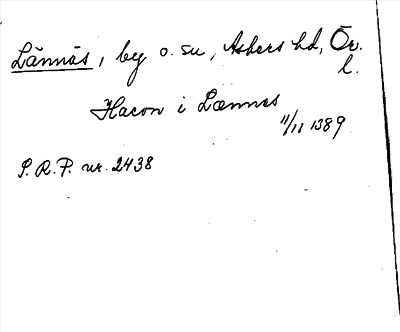 Lännäs, by o. su, Askers hd, Ör.
l.
Hacon i Lænnes
11/11 1389
S.R.P. nr. 2438